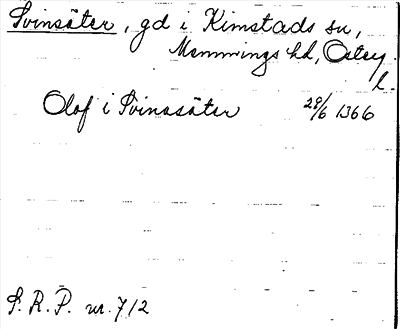 Svinsäter, gd i Kimstads sn,
Memmings hd, Östg.
l.
Olof i Svinasäter 28/6 1366
S. R. P. nr. 712